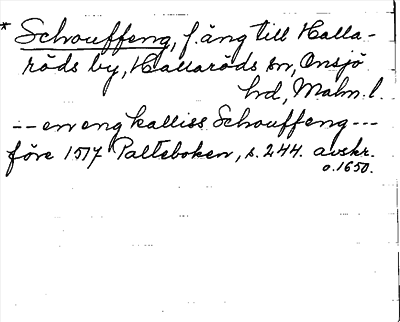 * Schouffeng, f. äng till Halla-
röds by, Hallaröds sn, Onsjö
hd, Malm. l.
-- en eng kalliss Schouffeng ---
före 1517 Palteboken, s. 244. avskr.
o. 1650.